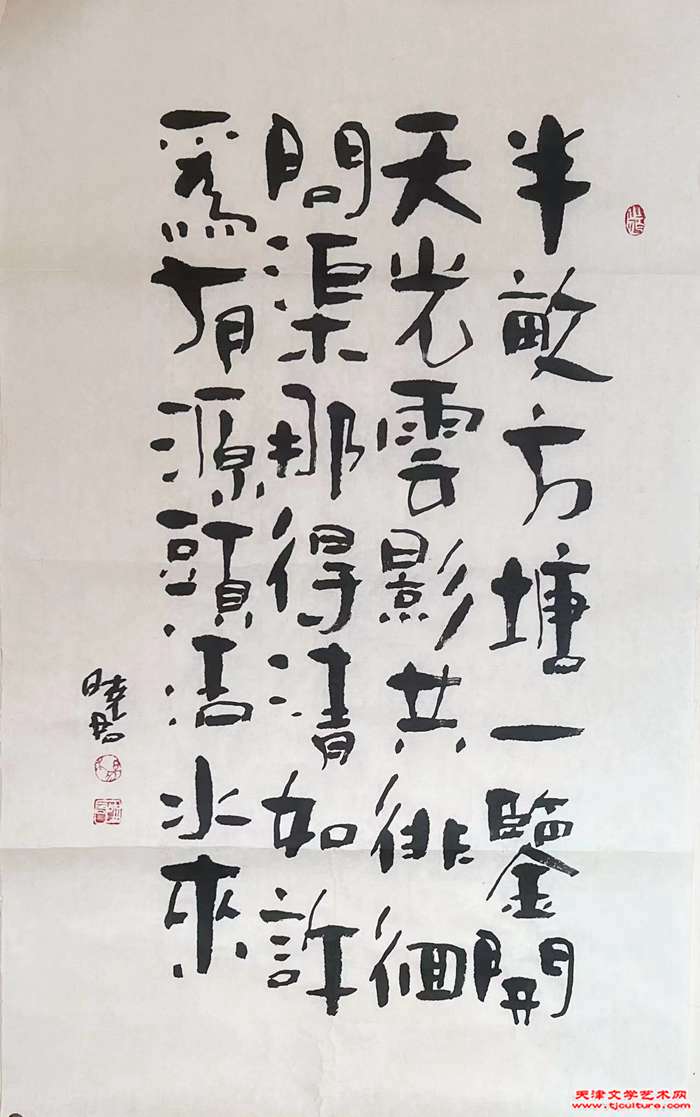 半畝方塘一鑒開
天光雲影共徘徊
問渠那得清如許
爲有源頭活水來
天津文学艺术网
www.tjculture.com